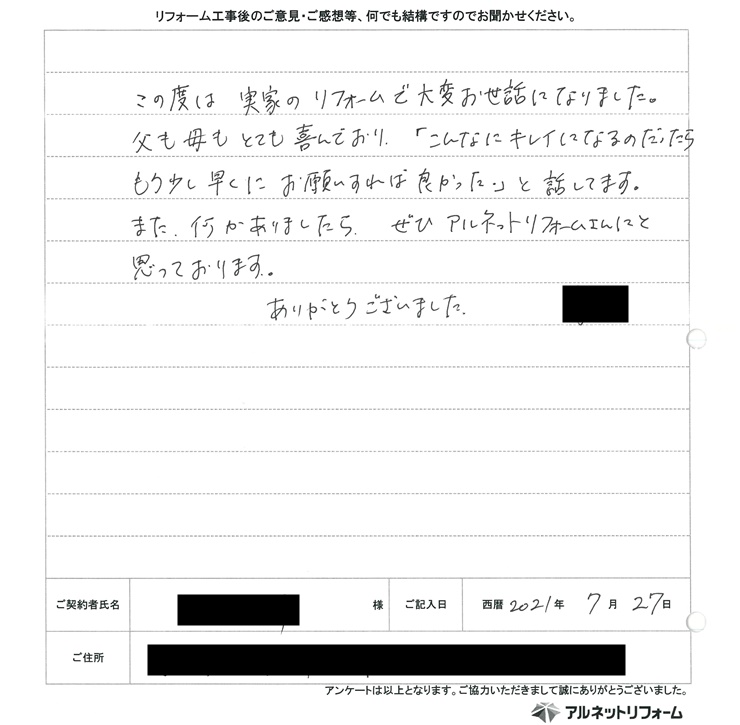 リフォーム工事後のご意見・ご感想等、何でも結構ですのでお聞かせください。
この度は 実家の リフォームで 大変お世話になりました。
父も 母も とても 喜んでおり、「こんなにキレイになるのだったら
もう少し 早くに お願いすれば 良かった。」と 話してます。
また、何かありましたら、ぜひ アルネットリフォームさんにと
思っております。
ありがとうございました。
ご契約者氏名 様 ご記入日 西暦 2021年 7月 27日
ご住所
アンケートは以上となります。ご協力いただきまして誠にありがとうございました。
アルネットリフォーム